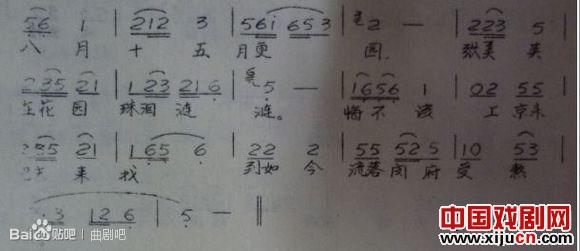 56 1 | 212 3 | 56i 653 | 2 — | 223 5
八 月 十 五 月更 圆 张美 英
235 21 | 123 216 | 5 — | 1656 1 | 02 55
花 园 珠泪 涟 涟。 悔不 该 上 京来
35 21 | 165 6 | 22 2 | 55 52 5 | 10 53
来 找 到如 今 流落 府 受
3 12 6 | 5 — ‖
Bai du 贴吧 | 曲剧吧
中国戏剧网
www.xijucn.com